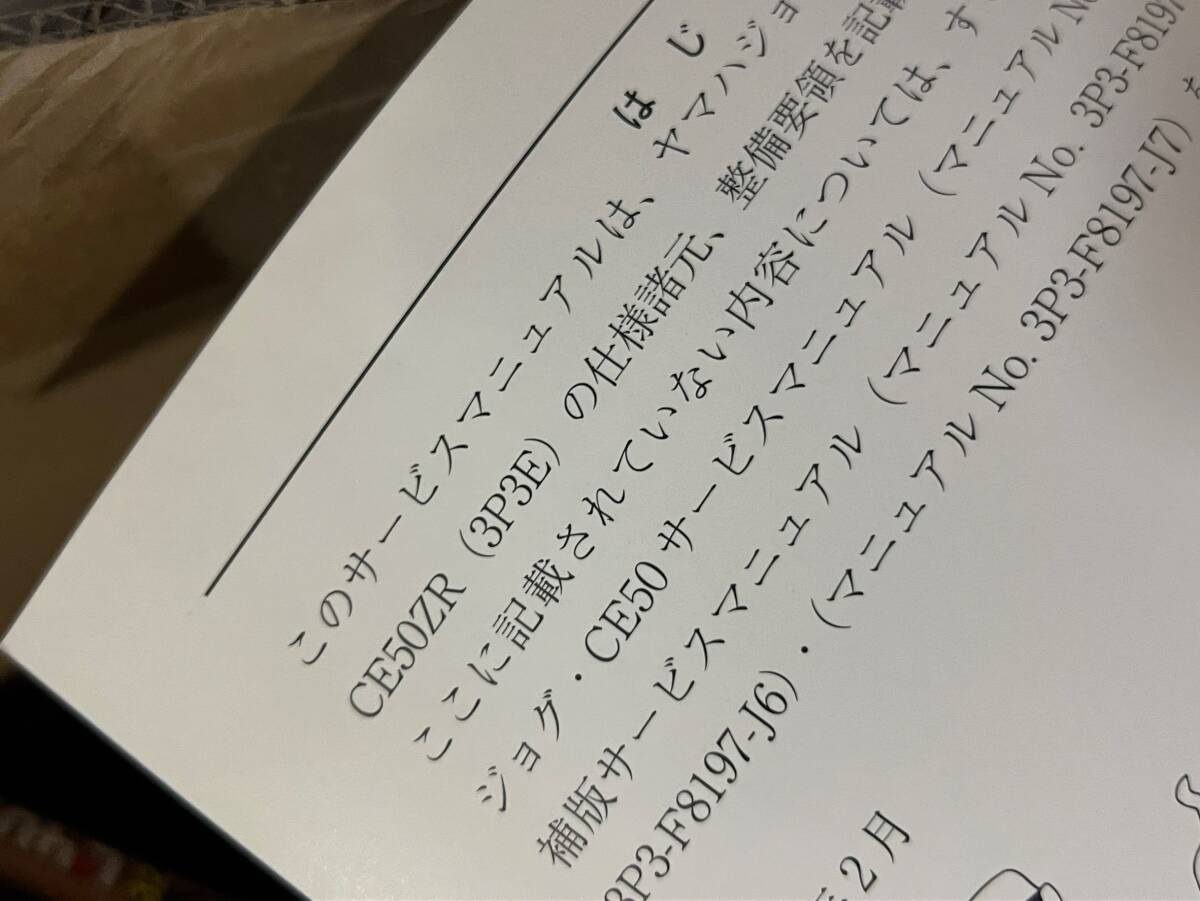 はじ
このサービスマニュアルは、ヤマハジョ
CE50ZR（3P3E）の仕様諸元、整備要領を記載
ここに記載されていない内容については、す
ジョグ・CE50 サービスマニュアル（マニュアル No.
補版サービスマニュアル（マニュアル No. 3P3-F8197
3P3-F8197-J6）・（マニュアル No. 3P3-F8197-J7）を
年2月